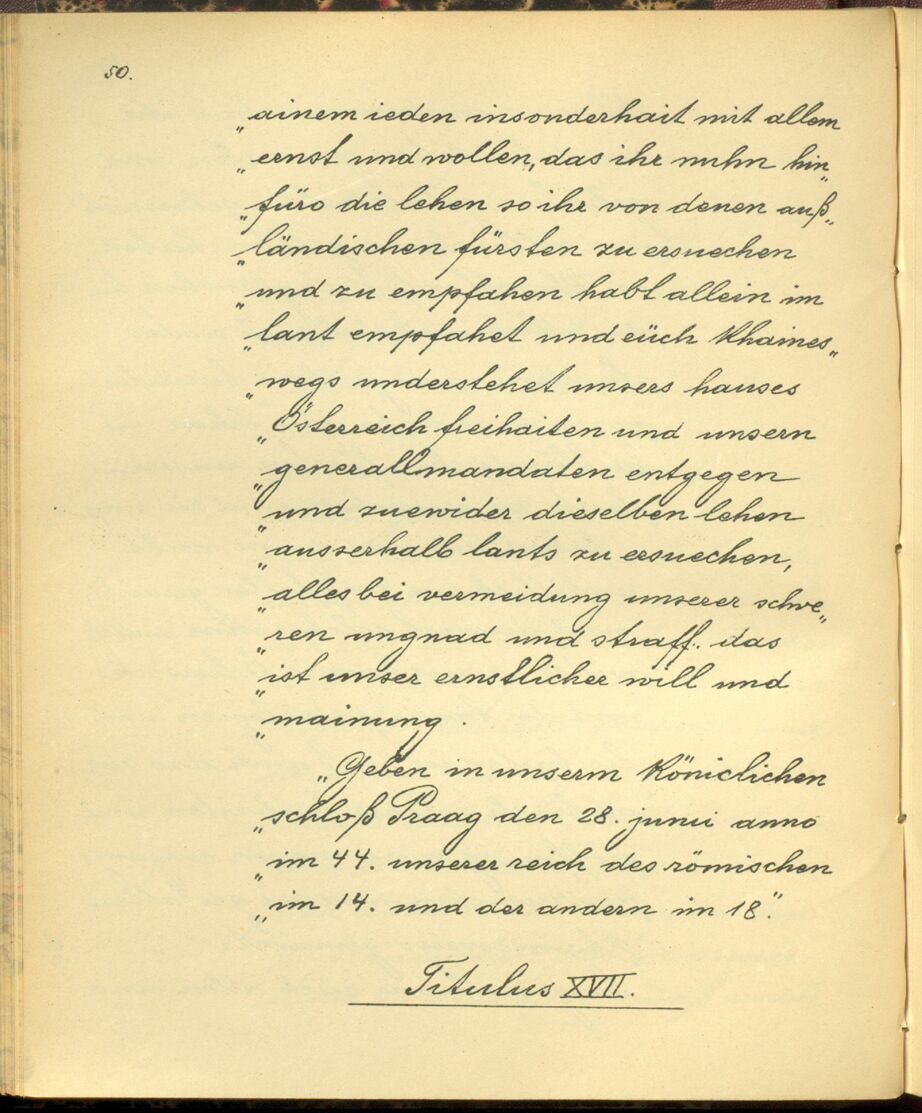 50.
„ainem ieden insonderhait mit allem
„ernst und wollen, das ihr nuhn hin„
„füro die lehen so ihr von denen auß„
„ländischen fürsten zu ersuechen
„und zu empfahen habt allein im
„lant empfahet und eüch khaines„
„wegs understehet unsers hauses
„Österreich freihaiten und unsern
„generallmandaten entgegen
„und zuewider dieselben lehen
„ausserhalb lants zu ersuechen,
„alles bei vermeidung unserer schwe„
„ren ungnad und straff.: das
„ist unser ernstlicher will und
„mainung.
„Geben in unserm Königlichen
„schloß Praag den 28. junii anno
„im 44. unserer reich des römischen
„im 14. und der andern im 18."
Titulus XVII.